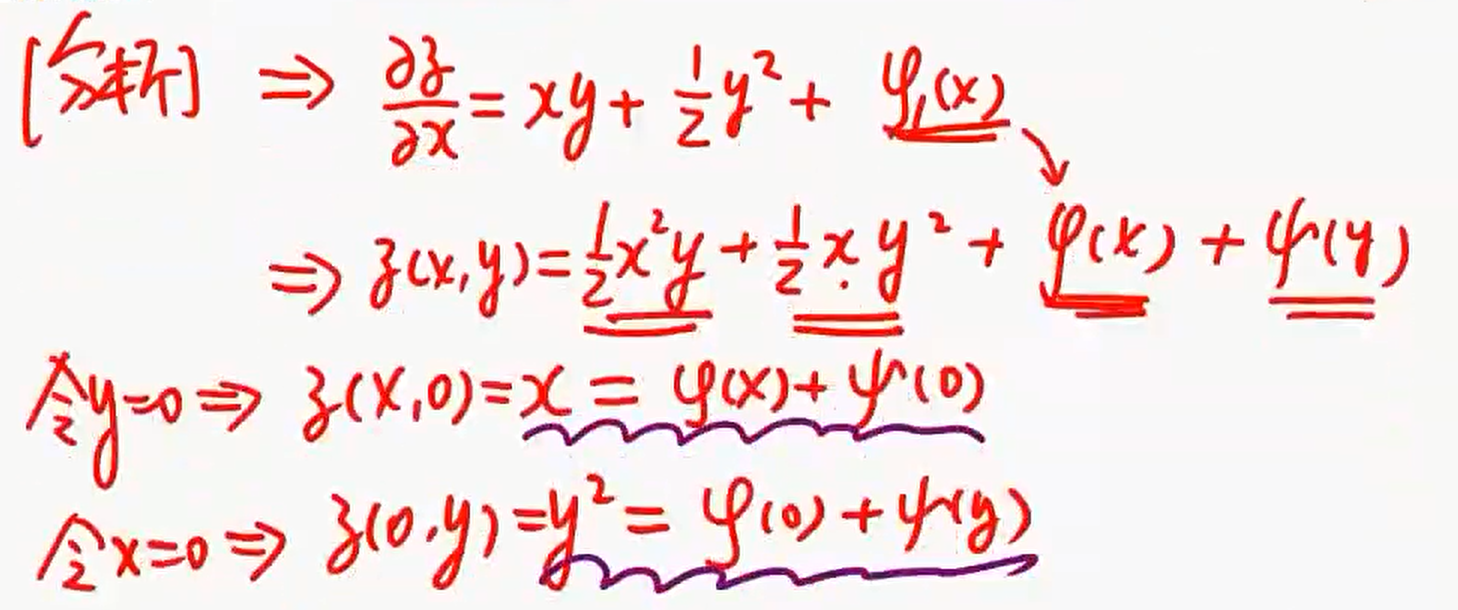 [分析] ⇒ ∂z/∂x = xy + 1/2 y² + φ₁(x)
⇒ z(x,y) = 1/2 x²y + 1/2 x y² + φ(x) + ψ(y)
令y=0 ⇒ z(x,0) = x = φ(x) + ψ(0)
令x=0 ⇒ z(0,y) = y² = φ(0) + ψ(y)